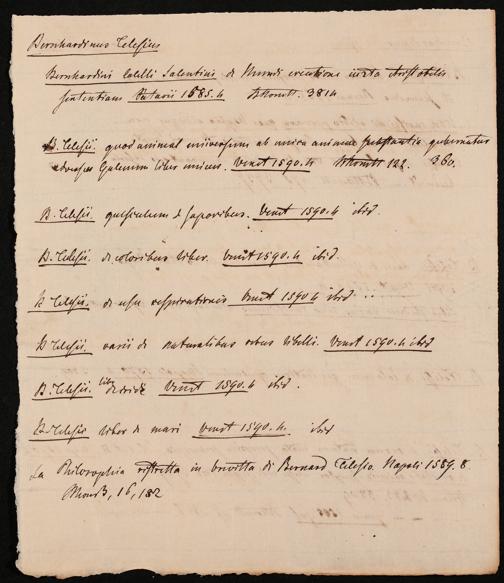 Bernhardinus Telesius
Bernhardini Salentius de Mundi creatione iuxta Aristotelis
sententiam 1585.4 3814
B. Telesii. quod animal universum ab unica animae substantia gubernatur
adversus Galenum liber unicus. Venet 1590.4 122. 360.
B. Telesii. de saporibus. Venet 1590.4 ibid.
B. Telesii. de coloribus liber. Venet 1590.4 ibid.
B. Telesii. de usu respirationis Venet 1590 4 ibid.
B. Telesii. varii de naturalibus rebus libelli. Venet 1590.4 ibid
B. Telesii. liber de iride Venet 1590.4 ibid.
B. Telesio liber de mari Venet 1590.4. ibid
La Philosophia ristretta in brevità di Bernard Telesio. Napoli 1589. 8
16, 182